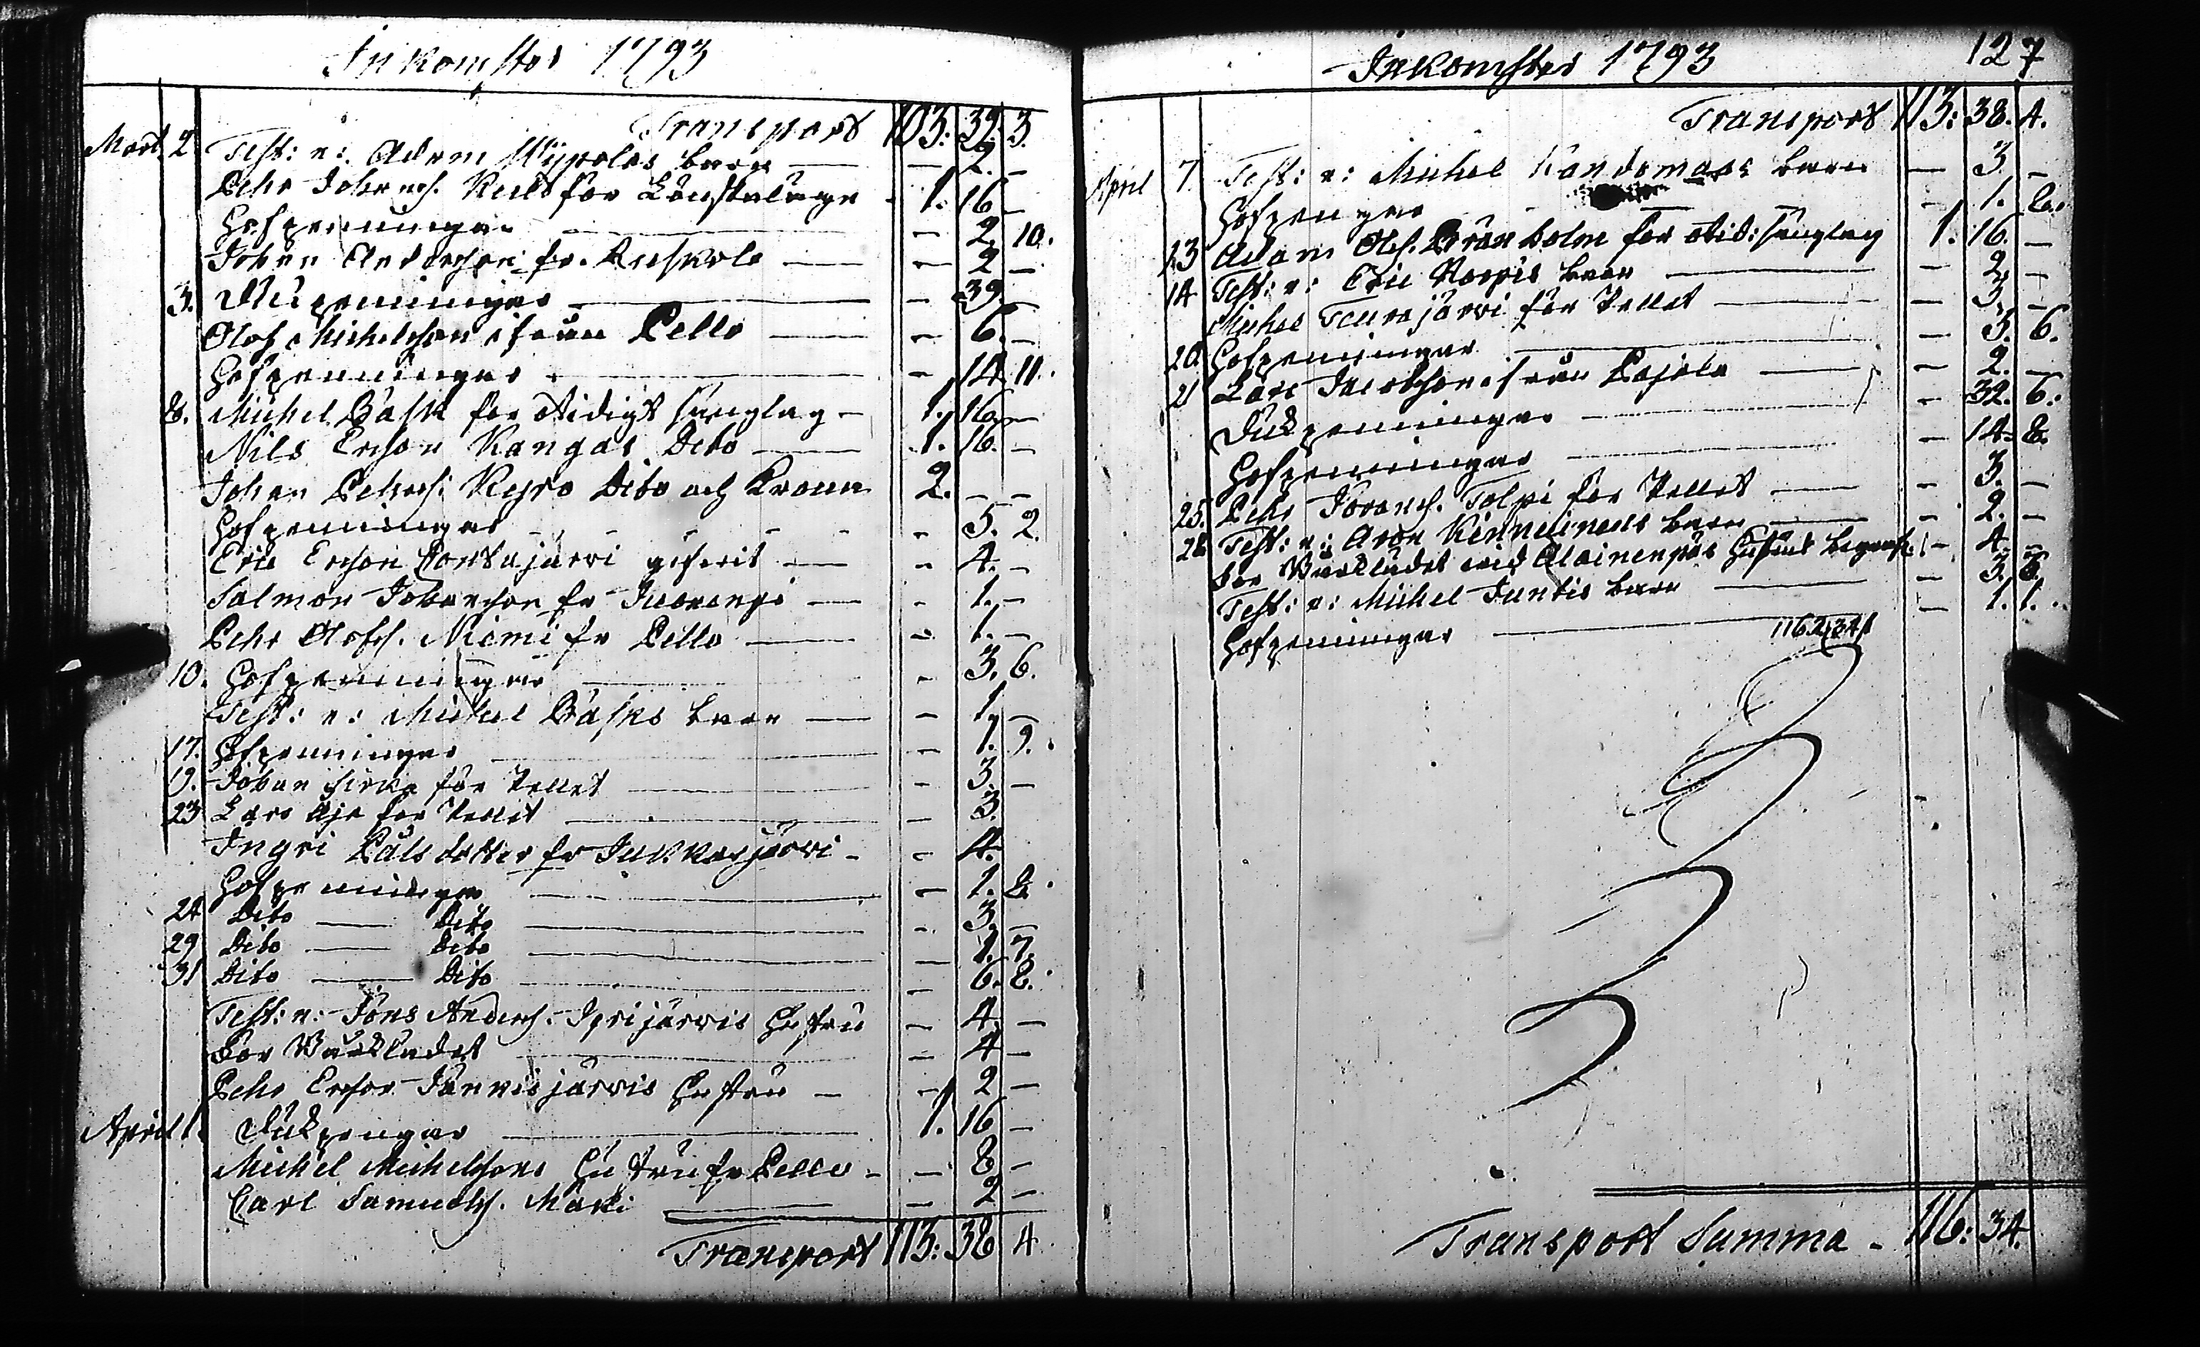 Inkomster 1793
Transport 103: 39. 3.
Mart. 2. Test: n: Adam Mypolas barn — — 2. —
Pehr Johansh. Keils för Lönstaläge - 1. 16 —
Hofpenningar — — 2. 10.
Johan Anderson fr. Auskola — — 2 —
3. Dukpenningar — — 39. —
Olof Michelsson ifrån Pello — - 6. —
Hofpenningar — - 14. 11.
8. Michel Bäsk for otidigt sänglag — 1. 16. —
Nils Ersson Kangas Dito — 1. 16. —
Johan Pehrss: Keyro Dito och Kronan 2. — —
Hofpenningar - - - 5. 2.
Eric Ersson Portajärvi — - 4. —
Salmon Johansson fr Juoxengi — - 1. —
Pehr Olofss. Niemi fr Pello — - 1. —
10. Hofpenningar — - 3. 6.
Test: n: Michel Bäsks barn — — 1. —
17. Hofpenningar — - 1. 9.
19. Johan Sirka för Stället — - 3. —
23 Lars Aja for Stället — - 3.
Ingri Pålsdotter fr Jukkasjärvi - - 4.
Hofpenningar — — 1. 8.
24 Dito — Dito — - 3. —
29 Dito — Dito — - 1. 7.
31 Dito — Dito — - 6. 8.
Test: n: Jöns Anderss. Ipijärvis Hustru — 4. —
For Bårklädet — — 4 —
Pehr Ersson Jänkisjärvis Hustru — - 2 —
April 1. Dukpengar — 1. 16 —
Michel Michelssons Hustru fr Pello - — 8 —
Carl Samuelss. Mäki — — 2 —
Transport 113: 38 4
Inkomster 1793 127
Transport 113: 38. 4.
April 7. Test: n: Michel barn — 3. —
Hofpengar - - — - 1. 8.
13 Adam Olss. Brännholm för otid: sänglag 1. 16. —
14 Test: n: Eric barn — — 2. —
Michel Taurajärvi för Stället — — 3. —
20. Hofpenningar — — 3. 6.
21 Lars Jacobsson ifrån Pajala — — 2. —
Dukpenningar — - 32. 6.
Hofpenningar — — 14. 8.
25. Pehr Joranss. Tolpi för Stället — - 3. —
28. Test: n: Aron barn — - 2. —
For Bårklädet wid Alainenpäs Hustrus begrafn: - 4. —
Test: n: Michel Juntis barn — - 3. 6.
Hofpenningar — — 1. 1.
116.2|34|
Transport Summa - 116: 34.